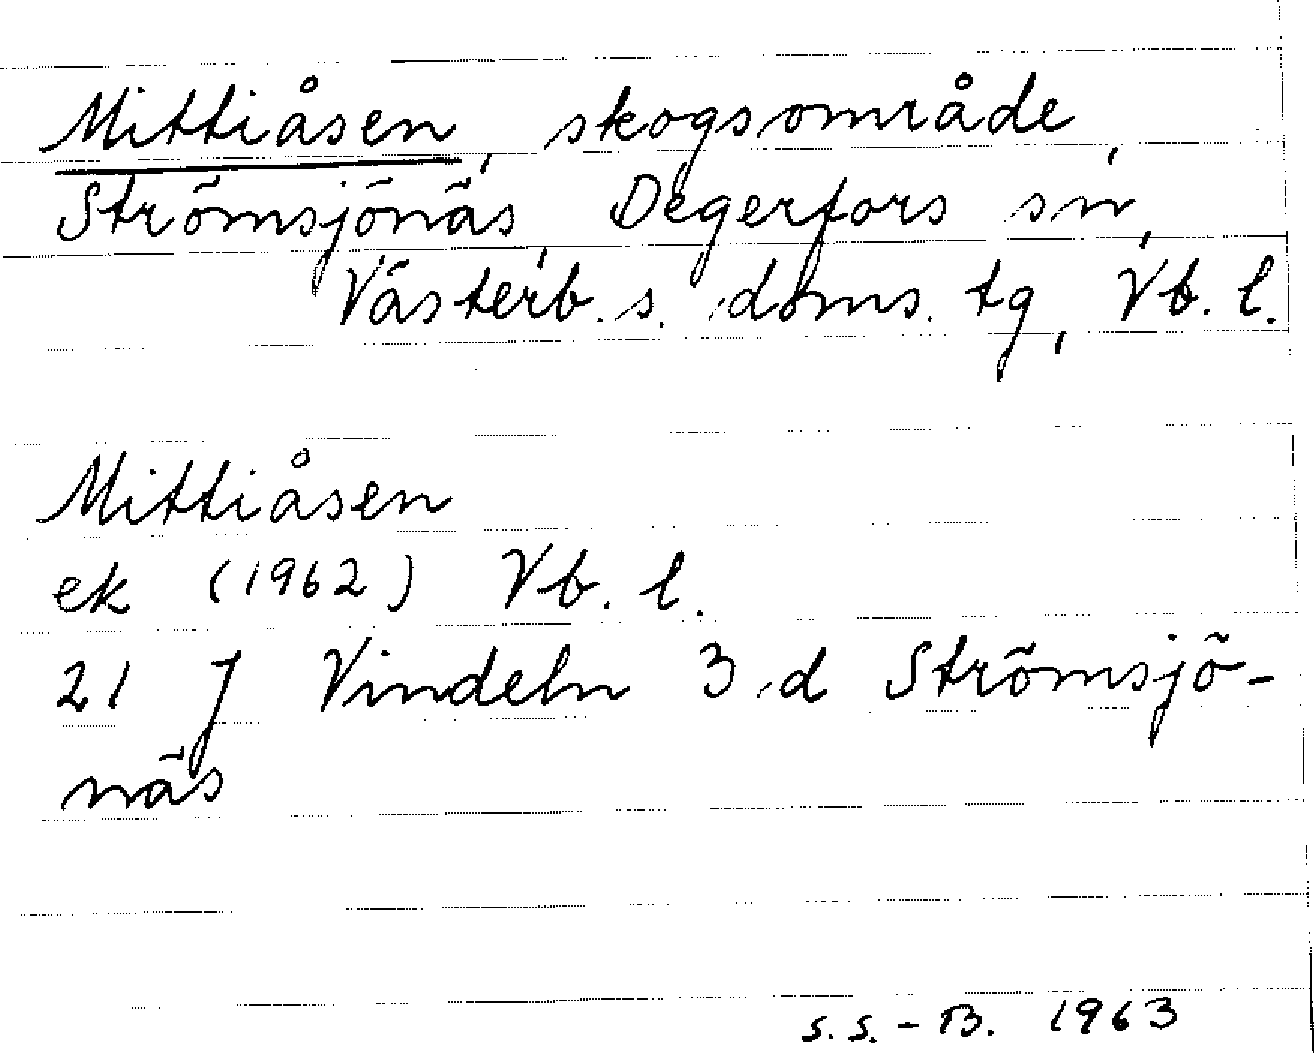 Mittiåsen, skogsområde,
Strömsjönäs, Degerfors sn,
Västerb. s. doms. tg, Vb. l.
Mittiåsen
ek (1962) Vb. l.
21 J Vindeln 3 d Strömsjö-
näs
S.S.-B. 1963